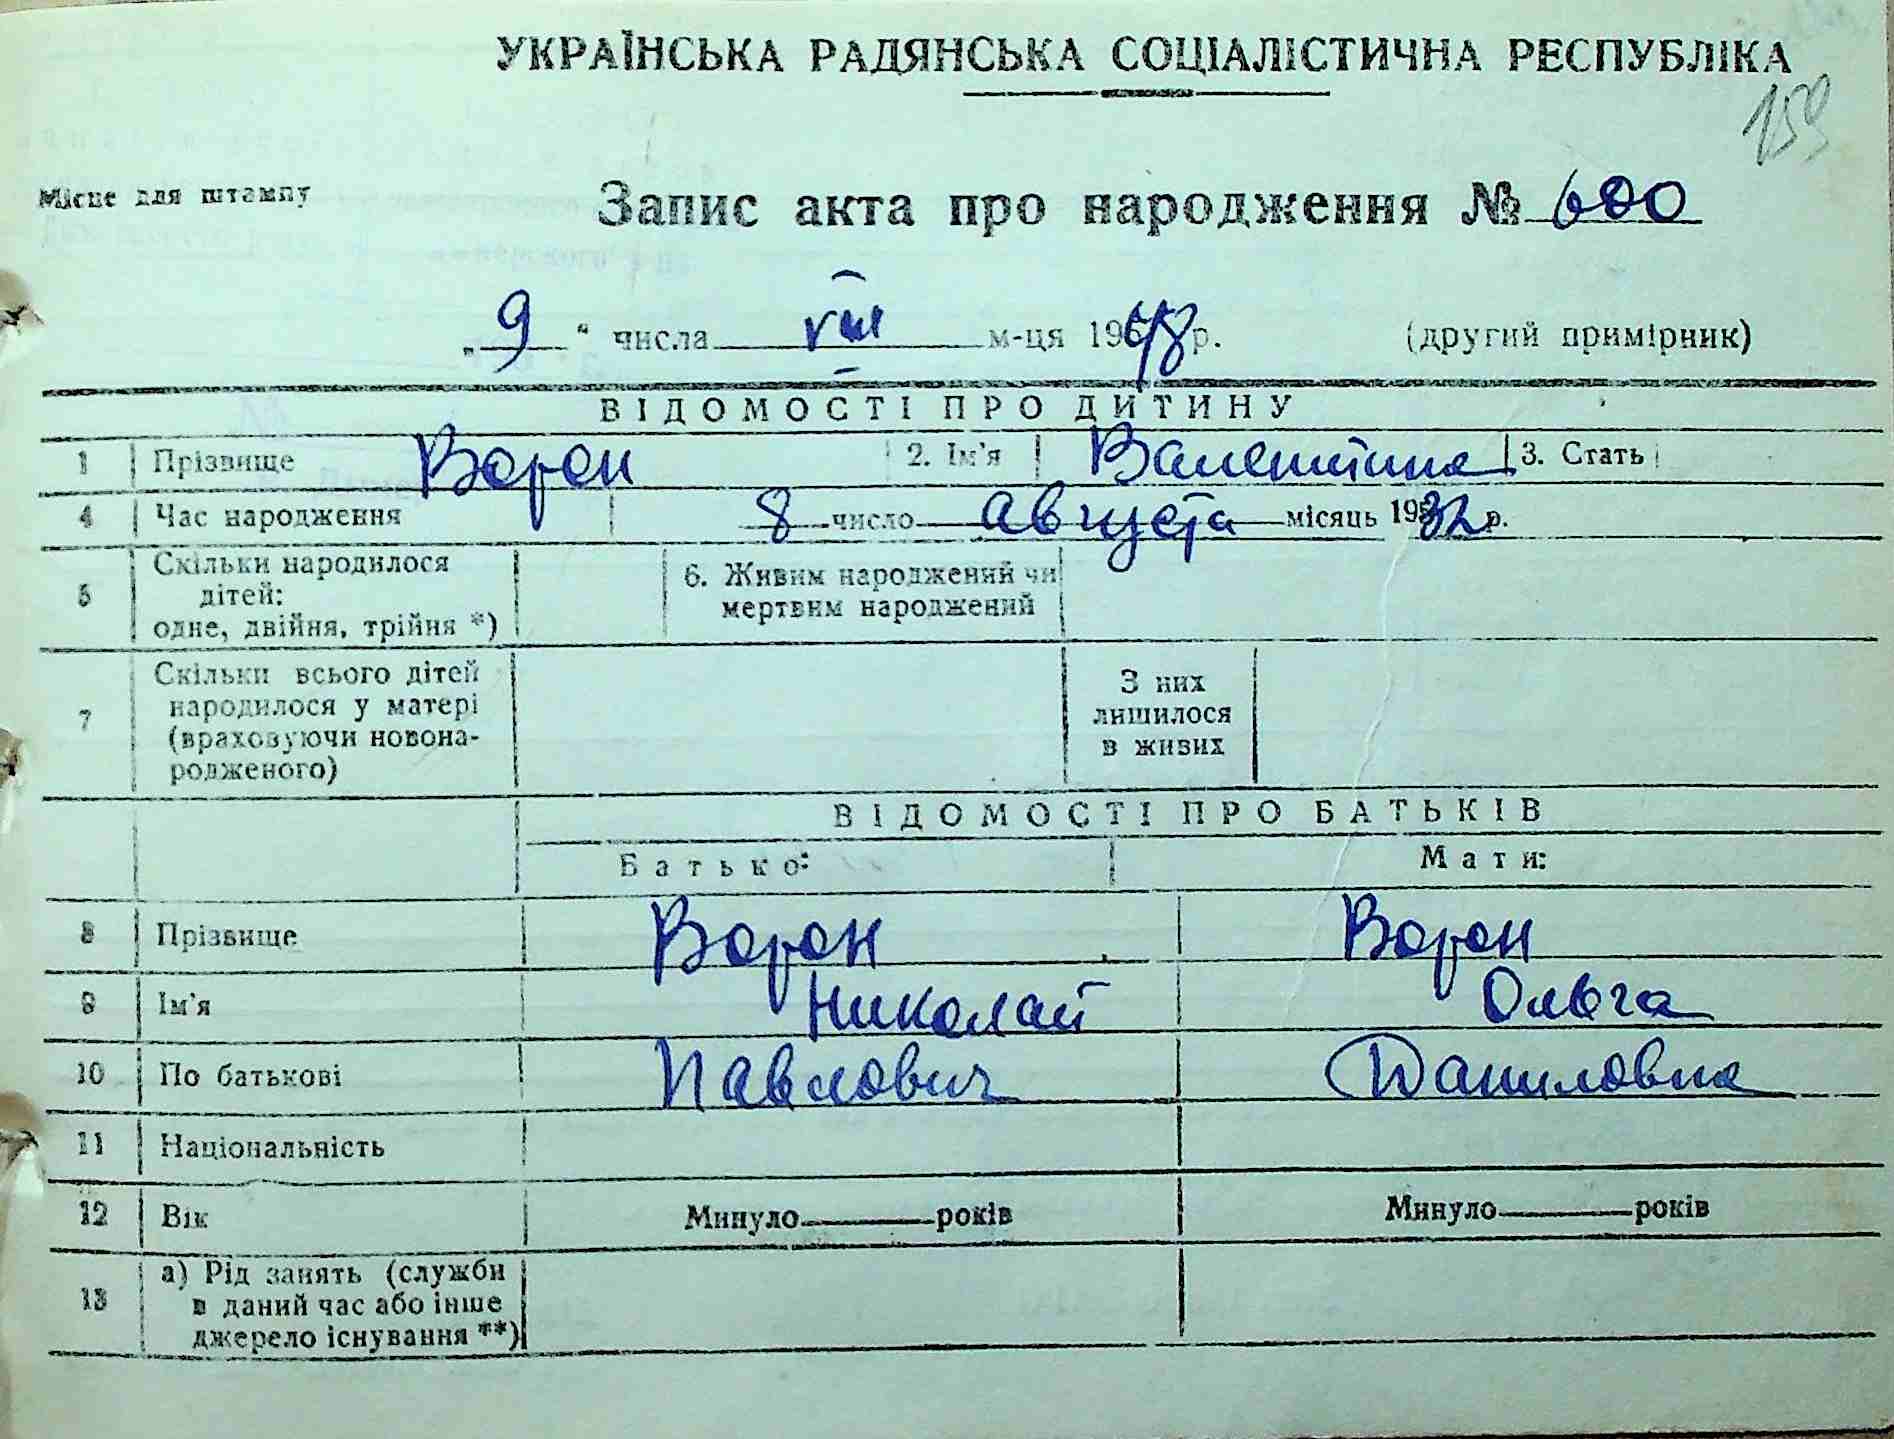 УКРАЇНСЬКА РАДЯНСЬКА СОЦІАЛІСТИЧНА РЕСПУБЛІКА
159
Місце для штампу
Запис акта про народження № 600
„ 9 “ числа VIII м-ця 1948 р. (другий примірник)
ВІДОМОСТІ ПРО ДИТИНУ
1 Прізвище Ворон 2. Ім'я Валентина 3. Стать
4 Час народження 8 число августа місяць 1932 р.
5 Скільки народилося дітей: одне, двійня, трійня *) 6. Живим народжений чи мертвим народжений
7 Скільки всього дітей народилося у матері (враховуючи новонародженого) З них лишилося в живих
ВІДОМОСТІ ПРО БАТЬКІВ
Батько: Мати:
8 Прізвище Ворон Ворон
9 Ім'я Николай Ольга
10 По батькові Павлович Даниловна
11 Національність
12 Вік Минуло років Минуло років
13 а) Рід занять (служби в даний час або інше джерело існування **)